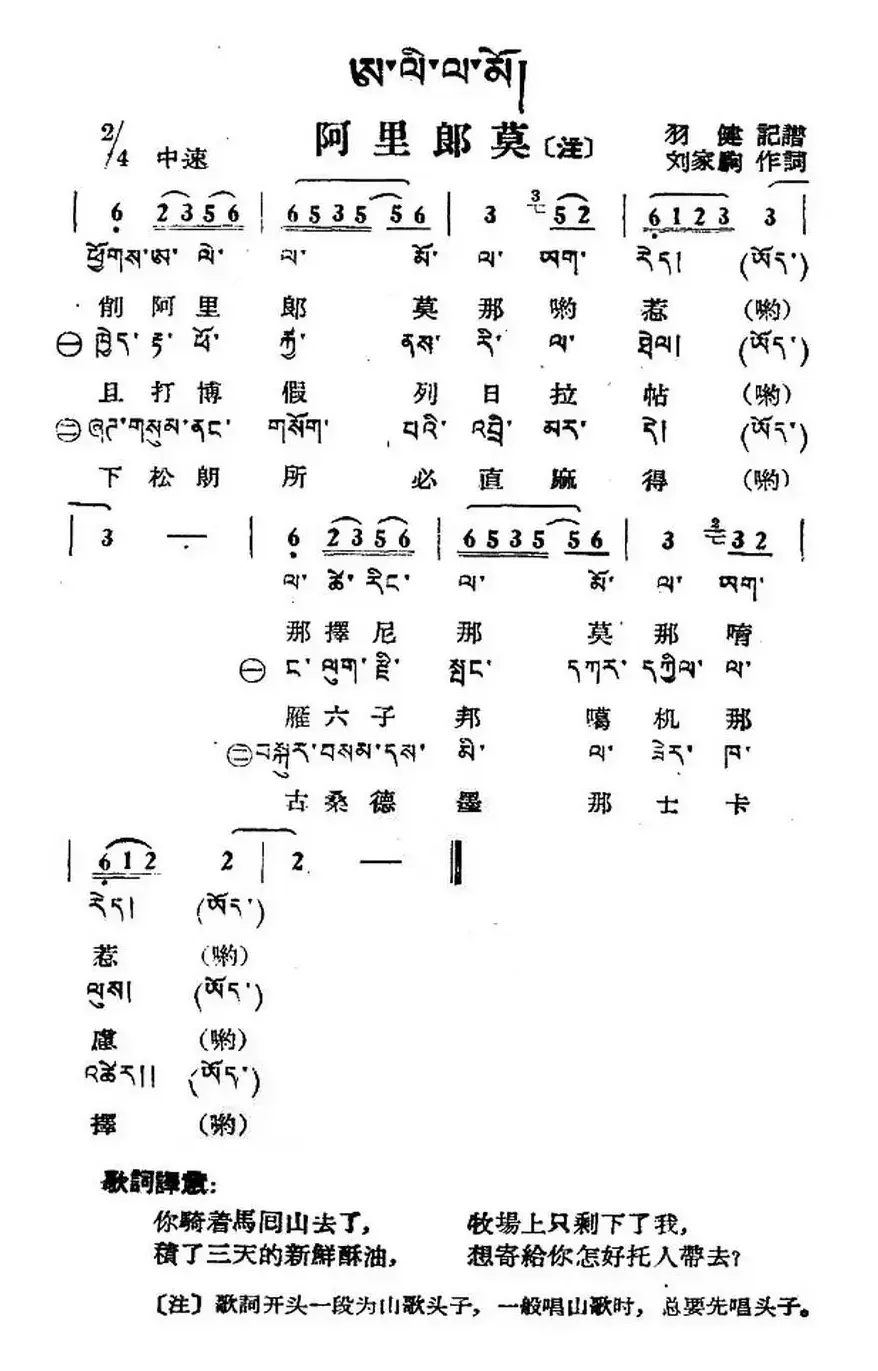 ཨ་ལི་ལ་མོ།
阿里郞莫〔注〕
羽健 記譜
2/4 中速
刘家駒 作詞
| 6 2356 | 6535 56 | 3 52 | 6123 3 |
ཕྱོགས་ཨ་ལེ་ ལ་ མོ་ ལ་ ཨག་ རེད། (ཨོད་)
削阿里 郞 莫那喲 惹 (喲)
㊀ ཁྱེད་ རྟ་ ཕོ་ རྒྱུ་ ནས་ རི་ ལ་ ཐེལ། (ཨོད་)
且打博 假 列日拉 帖 (喲)
㊁ ཞག་གསུམ་ནང་ གསོག་ པའི་ འབྲི་ མར་ དེ། (ཨོད་)
下松朗 所 必直麻 得 (喲)
| 3 — | 6 2356 | 6535 56 | 3 32 |
ལ་ ཚེ་ རིང་ ལ་ མོ་ ལ་ ཨག་
那擇尼 那 莫那唷
㊀ ང་ ལུག་ རྫི་ སྤང་ དཀར་ དཀྱིལ་ ལ་
雁六子 邦 噶机那
㊁ བསྐུར་བསམ་དས་ མི་ ལ་ ཟེར་ ཁ་
古桑德 墨 那士卡
| 612 2 | 2 — ‖
རེད། (ཨོད་)
惹 (喲)
ལུས། (ཨོད་)
慮 (喲)
འཚེར།། (ཨོད་)
擇 (喲)
歌詞譯意:
你騎着馬囘山去了, 牧場上只剩下了我,
積了三天的新鮮酥油, 想寄給你怎好托人帶去?
〔注〕歌詞开头一段为山歌头子, 一般唱山歌时, 总要先唱头子。